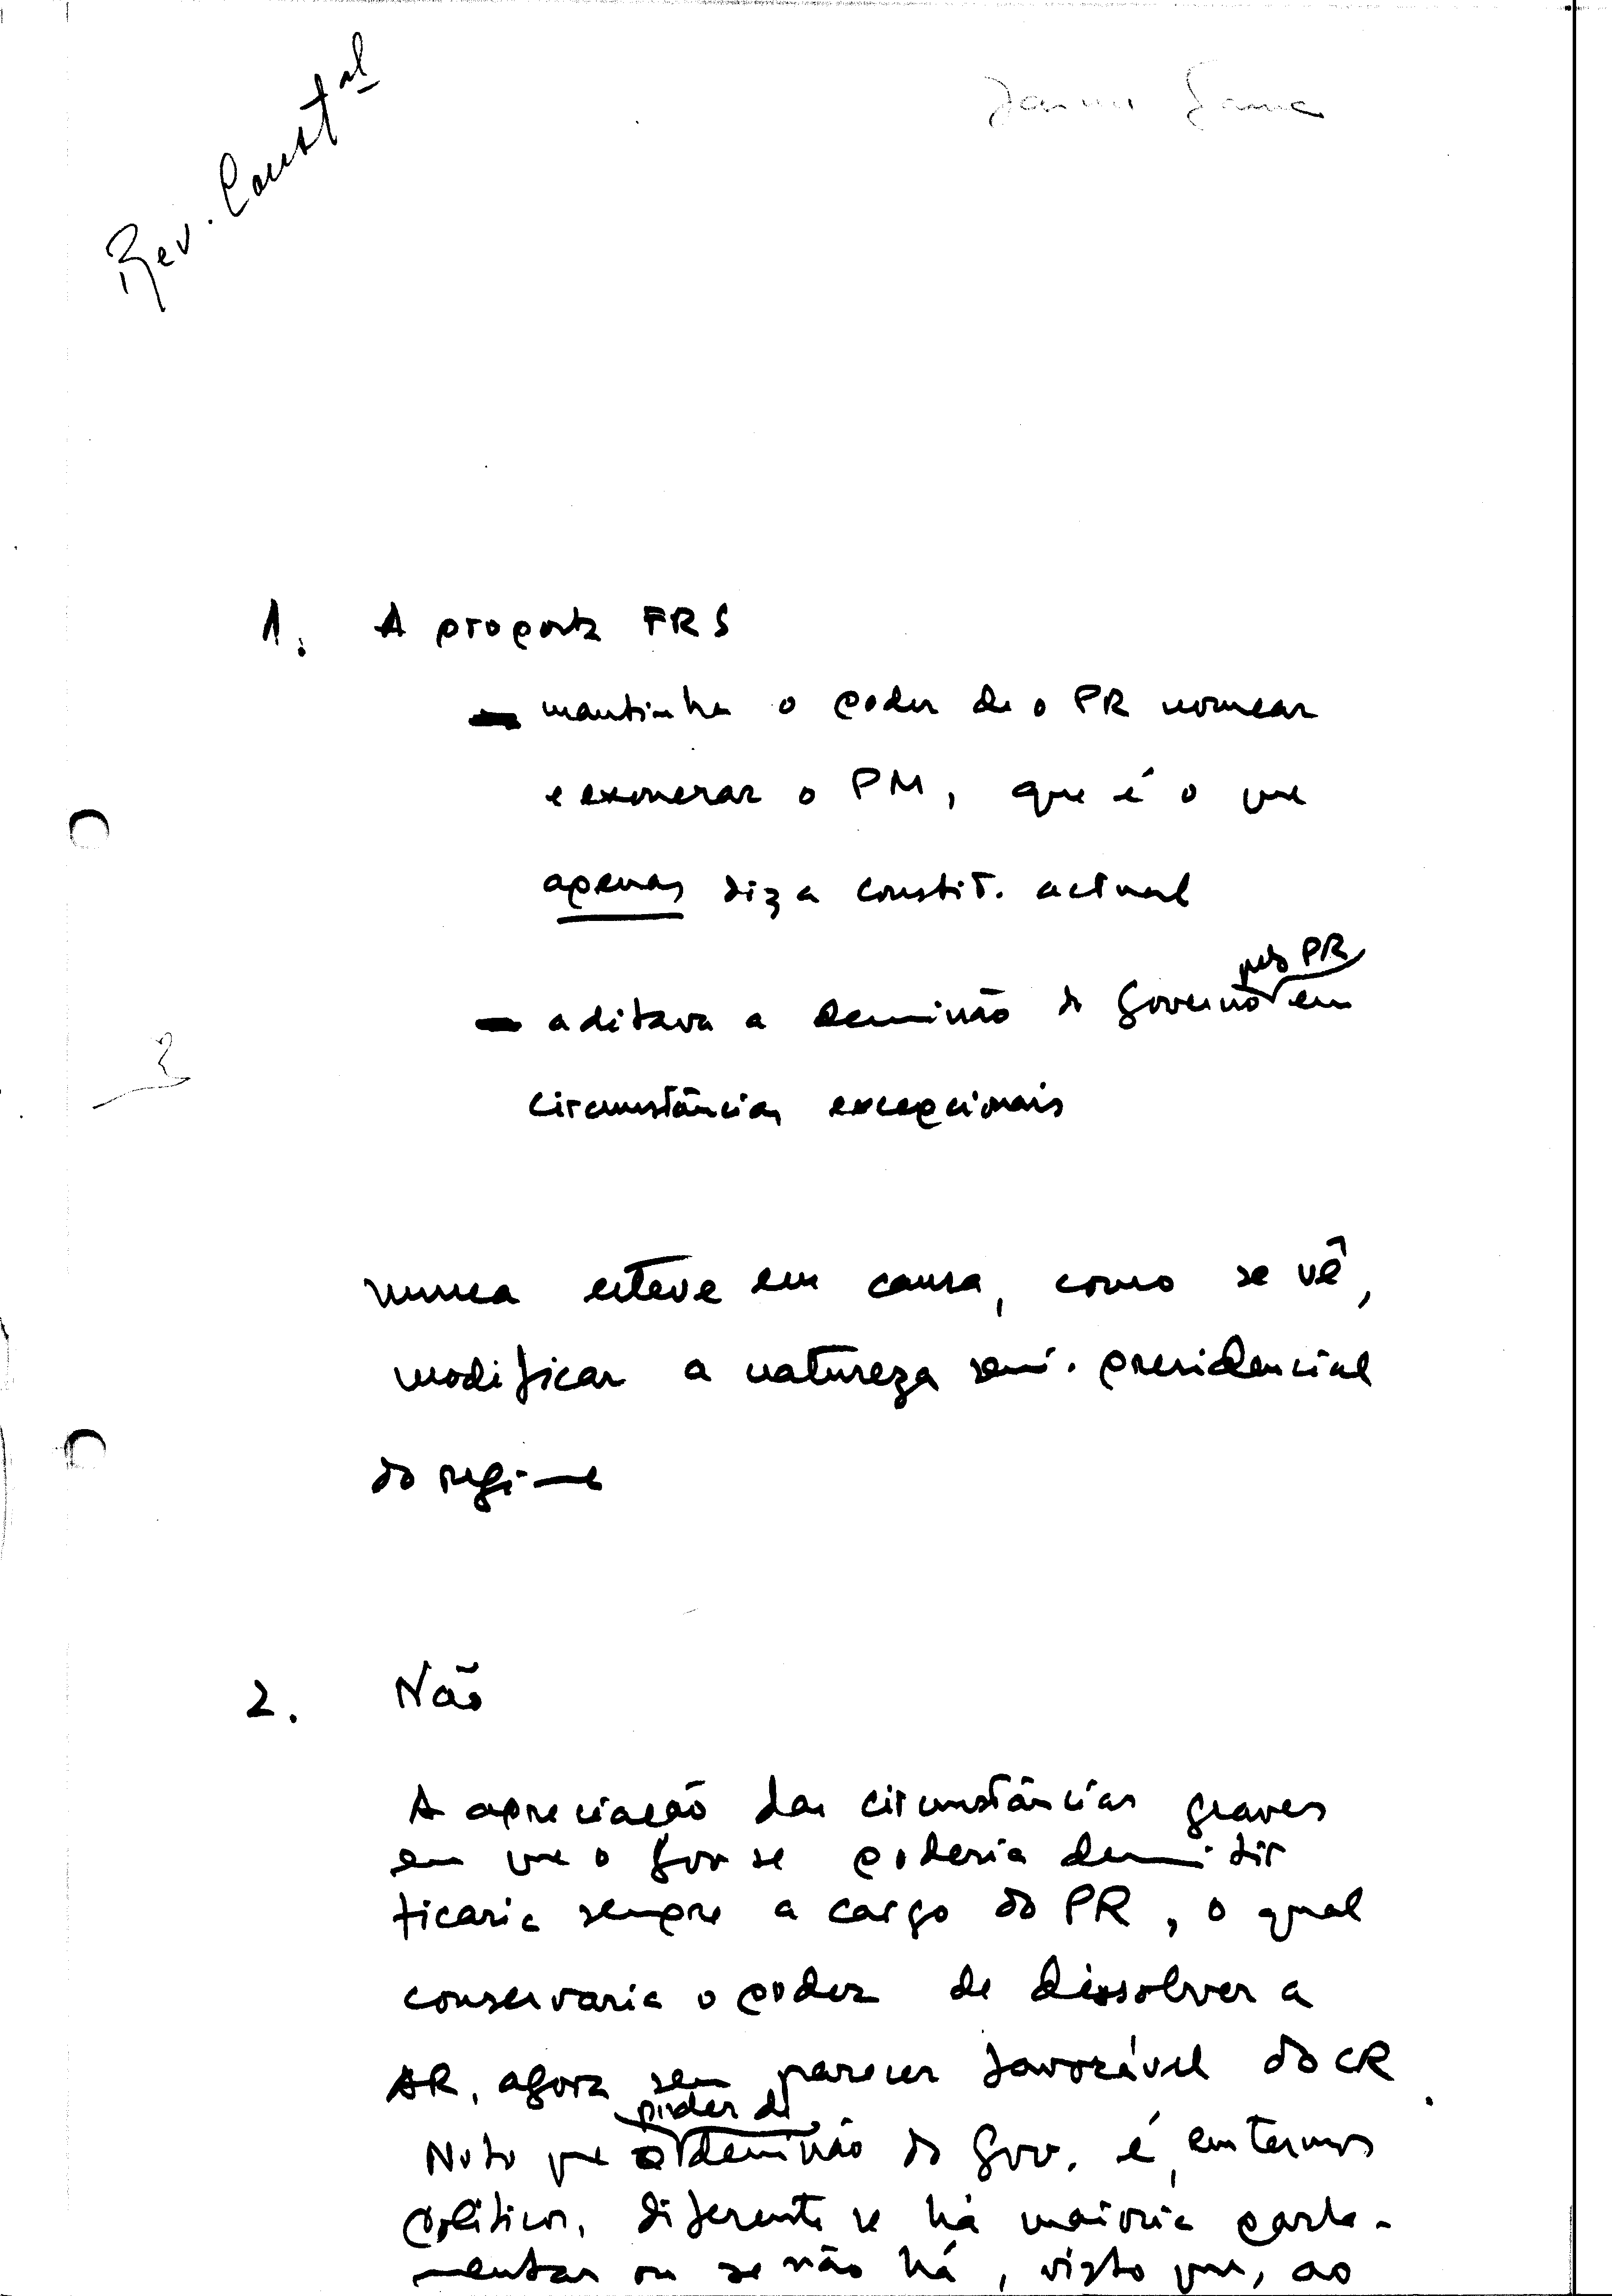 Rev. Const.al
1. A proposta FRS
— mantinha o poder de o PR nomear
e exonerar o PM, que é o que
apenas diz a constit. actual
pelo PR
— aditava a demissão do Governo em
circunstâncias excepcionais
nunca esteve em causa, como se vê,
modificar a natureza semi-presidencial
do regime
2. Não
A apreciação das circunstâncias graves
em que o Gov se poderia demitir
ficaria sempre a cargo do PR, o qual
conservaria o poder de dissolver a
AR, agora sem parecer favorável do CR.
poder de
Noto que o demissão do Gov. é, em termos
políticos, diferente se há maioria parla-
mentar ou se não há, visto que, ao